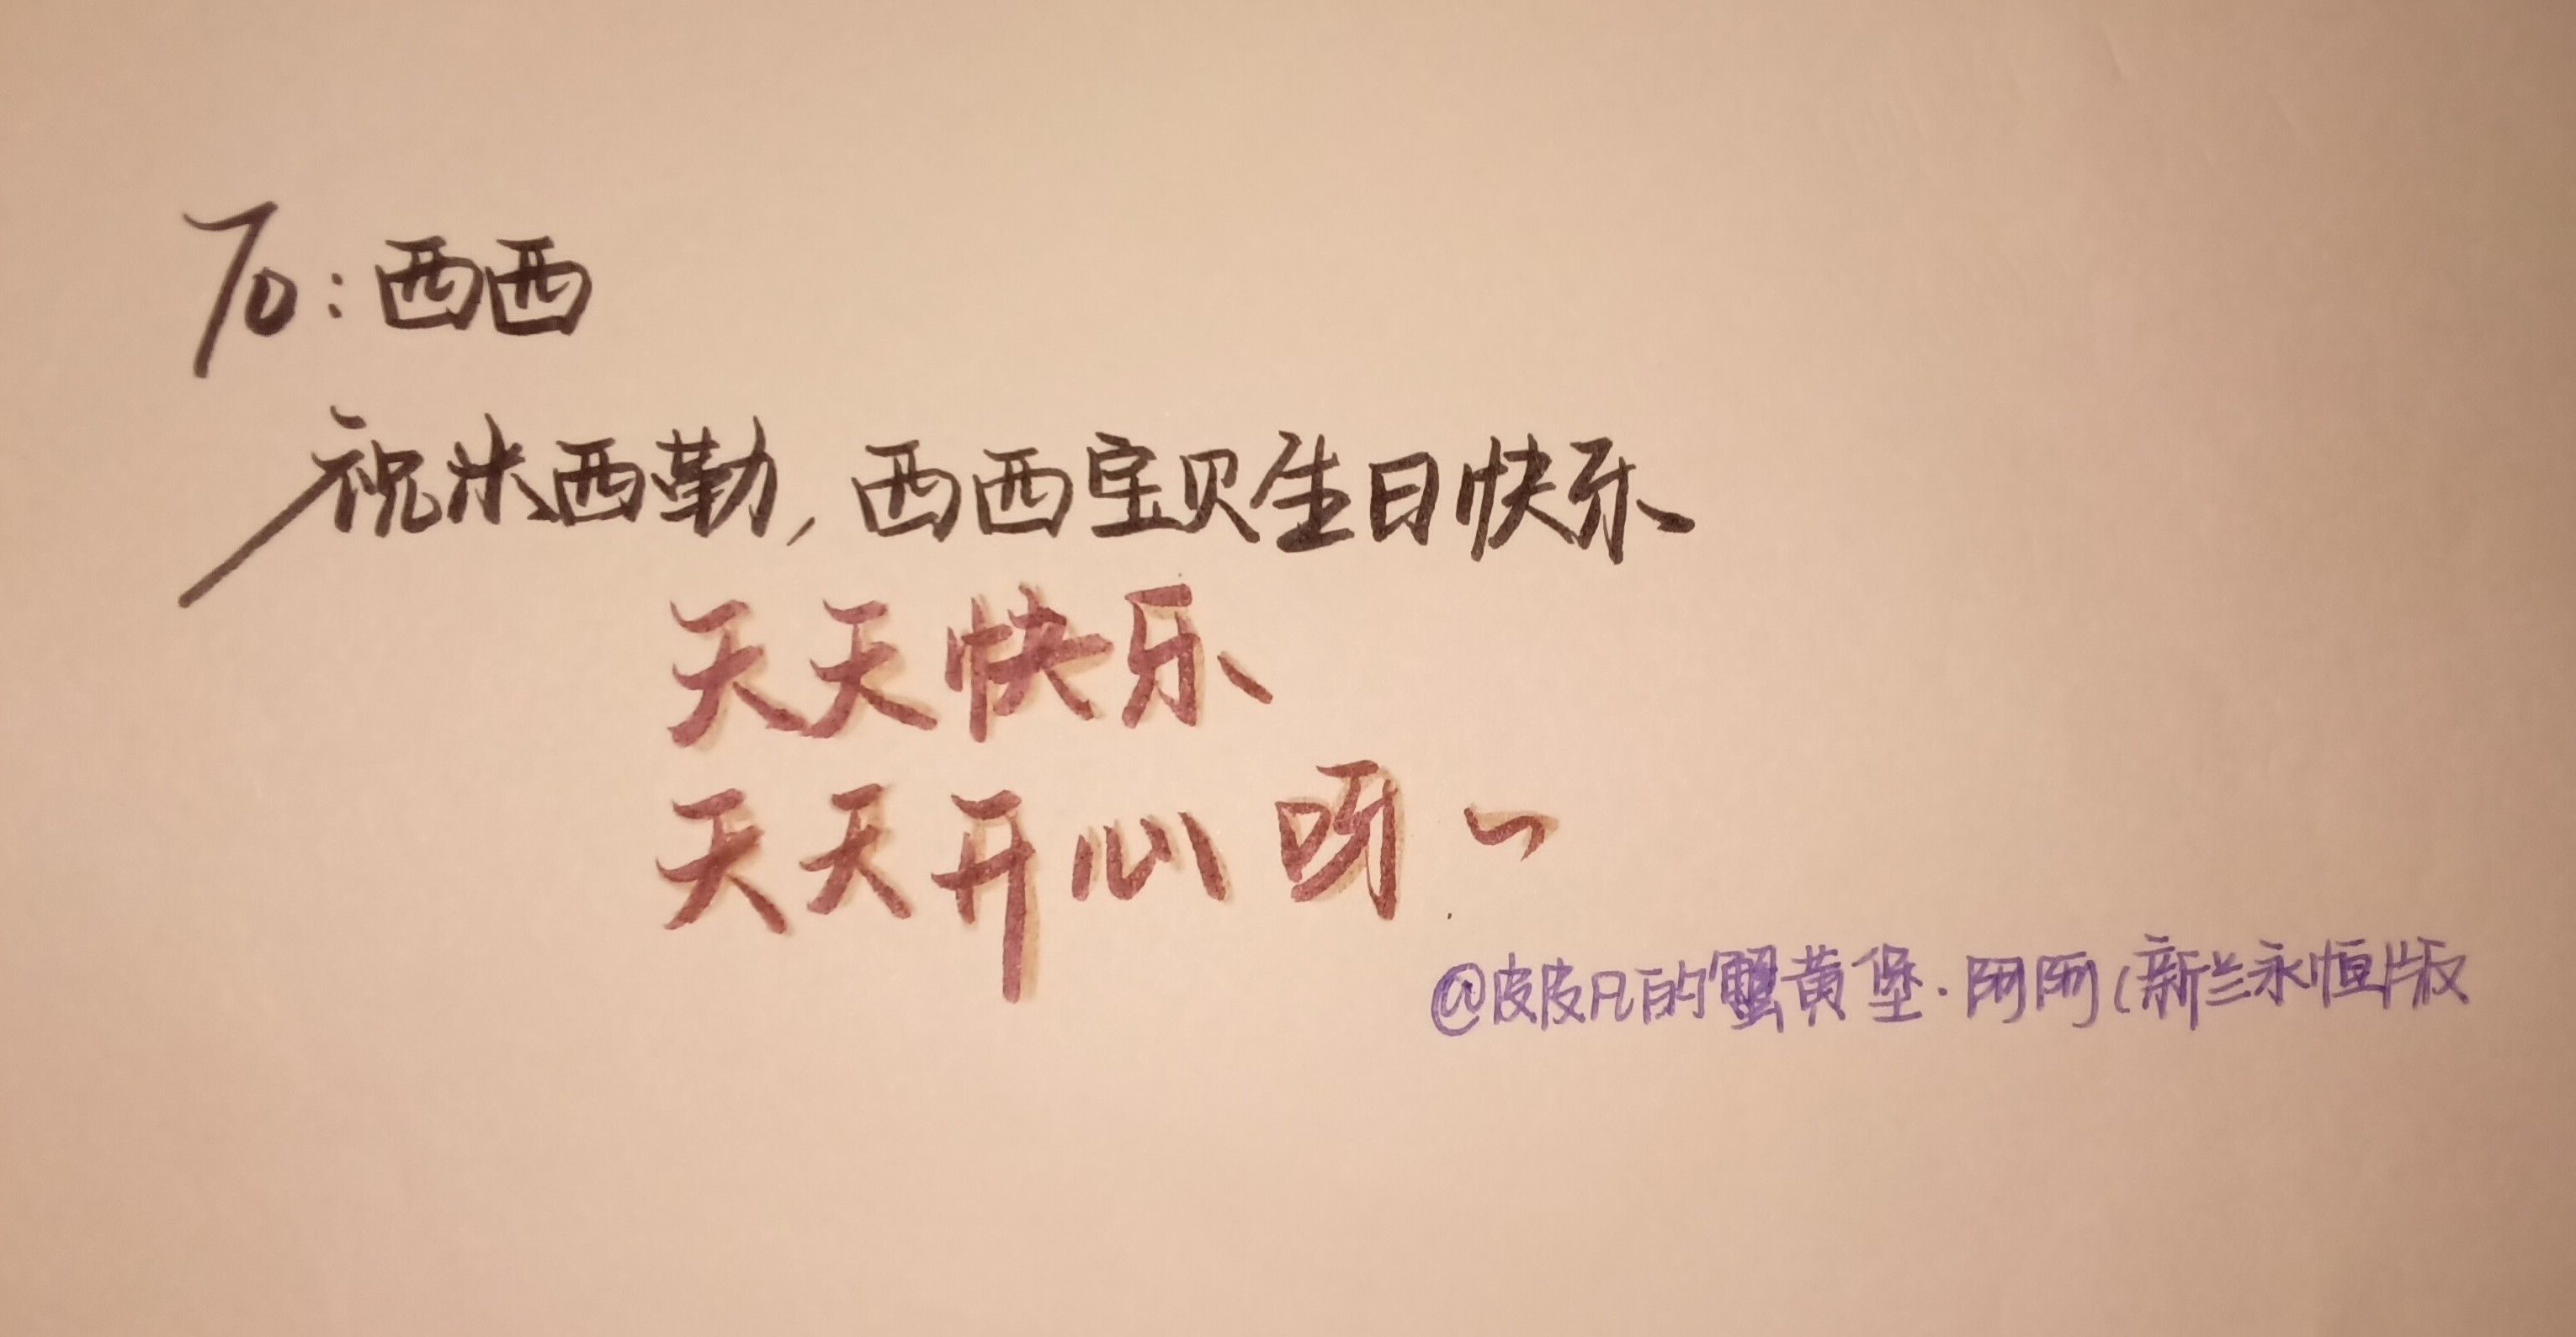 To:西西
祝米西勒,西西宝贝生日快乐
天天快乐
天天开心呀~
@皮皮凡的蟹黄堡·阿阿(新兰永恒版